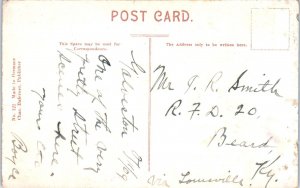 POST CARD.
This Space may be used for
Correspondence.
The Address only to be written here.
No. 122 Made in Germany
Galveston
One of the very
pretty street
scenes here.
Your Co.
Boyce
Mr J. R. Smith
R. F. D. 20,
Beard,
Ky.
Via Louisville